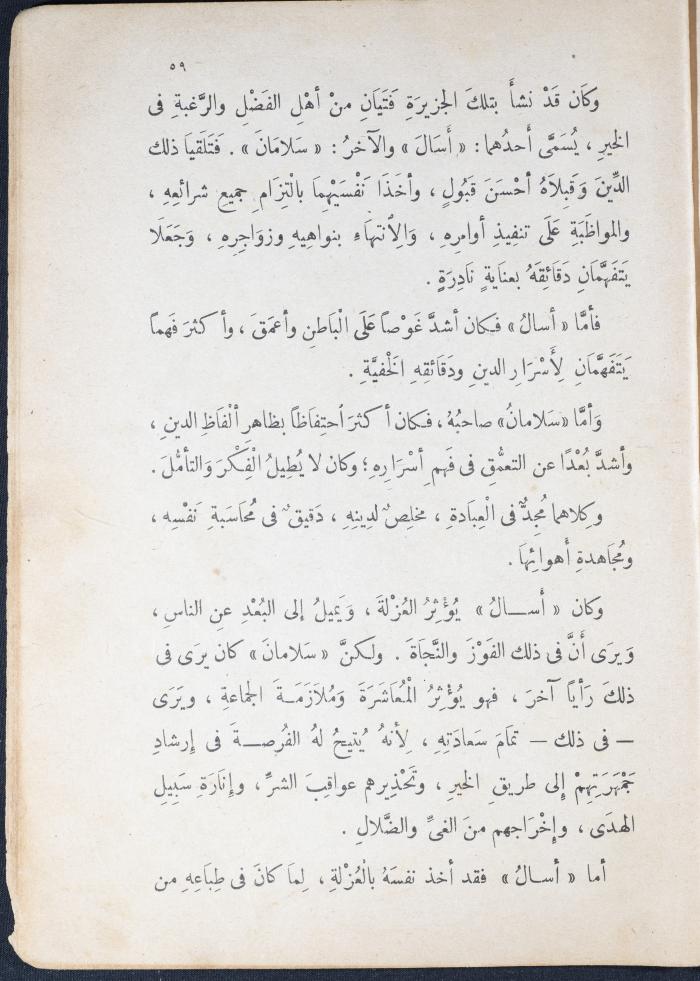 ٥٩
وكَان قَدْ نشأَ بتلكَ الجزيرَةِ فَتَيَانِ منْ أهْلِ الفَضْلِ والرَّغبةِ فى
الخيرِ ، يُسَمَّى أحدُهما : « أَسَالَ » والآخرُ : « سَلامَانَ » . فَتَلَقَّيا ذلك
الدِّينَ وَقَبِلاَهُ أحْسَنَ قَبُولٍ ، وأخَذَا نَفْسَيْهِمَا بالْتِزَامِ جميعِ شرائعِهِ ،
والمواظَبَةِ عَلَى تنفيذِ أوامِرِهِ ، وَالِانتهَاءِ بنواهيهِ وزوَاجِرِهِ ، وَجَعَلَا
يَتَفَهَّمَانِ دَقَائِقَهُ بعنايَةٍ نَادِرَةٍ .
فأمَّا « أسالُ » فكان أشدَّ غَوْصاً عَلَى الْبَاطنِ وأعمَقَ ، وأكثرَ فَهماً
يَتَفَهَّمَانِ لِأَسْرَارِ الدينِ ودَقَائقِهِ الخْفيَّةِ .
وَأمَّا «سَلامانُ» صاحبُهُ ، فكان أكثرَ احتِفَاظاً بظاهرِ ألْفَاظِ الدينِ ،
وأشدَّ بُعْدًا عن التعمُّقِ فى فَهمِ أسْرَارِهِ ؛ وكان لا يُطِيلُ الْفِكْرَ وَالتأمُّلَ .
وكِلاهما مُجِدٌّ فى الْعِبَادةِ ، مخلِصٌ لدِينِهِ ، دَقيقٌ فى مُحَاسَبَةِ نَفْسِه ،
ومُجَاهدةِ أهوائِهَا .
وكان « أســالُ » يُؤْثِرُ العُزْلةَ ، وَيَميلُ إلى البُعْدِ عنِ الناسِ ،
وَيرَى أَنَّ فى ذلك الفَوْزَ والنَّجَاةَ . ولكنَّ « سَلامانَ » كان يرَى فى
ذلكَ رَأياً آخرَ ، فهو يُؤْثِرُ الْمُعَاشَرَةَ وَمُلاَزَمَــةَ الجماعةِ ، ويَرَى
— فى ذلك — تمَامَ سَعادَتِهِ ، لِأنهُ يُتيحُ لهُ الفُرصــةَ فى إرشادِ
جَمْهَرَتِهِمْ إلى طريقِ الخيرِ ، وتَحْذِيرهم عواقِبَ الشرِّ ، وإنَارَةِ سَبِيلِ
الهدَى ، وإخْرَاجهم منَ الغىِّ والضَّلالِ .
أما « أســالُ » فقد أخذ نفسَهُ بالْعُزْلةِ ، لِمَا كانَ فى طِبَاعِهِ من